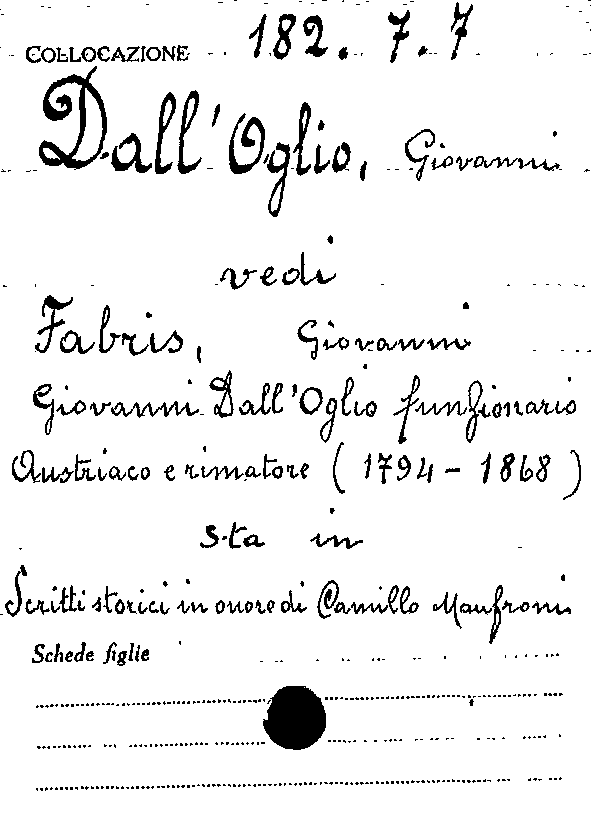 COLLOCAZIONE 182. 7. 7
Dall'Oglio, Giovanni
vedi
Fabris, Giovanni
Giovanni Dall'Oglio funzionario
Austriaco e rimatore (1794 - 1868)
sta in
Scritti storici in onore di Camillo Manfroni
Schede figlie